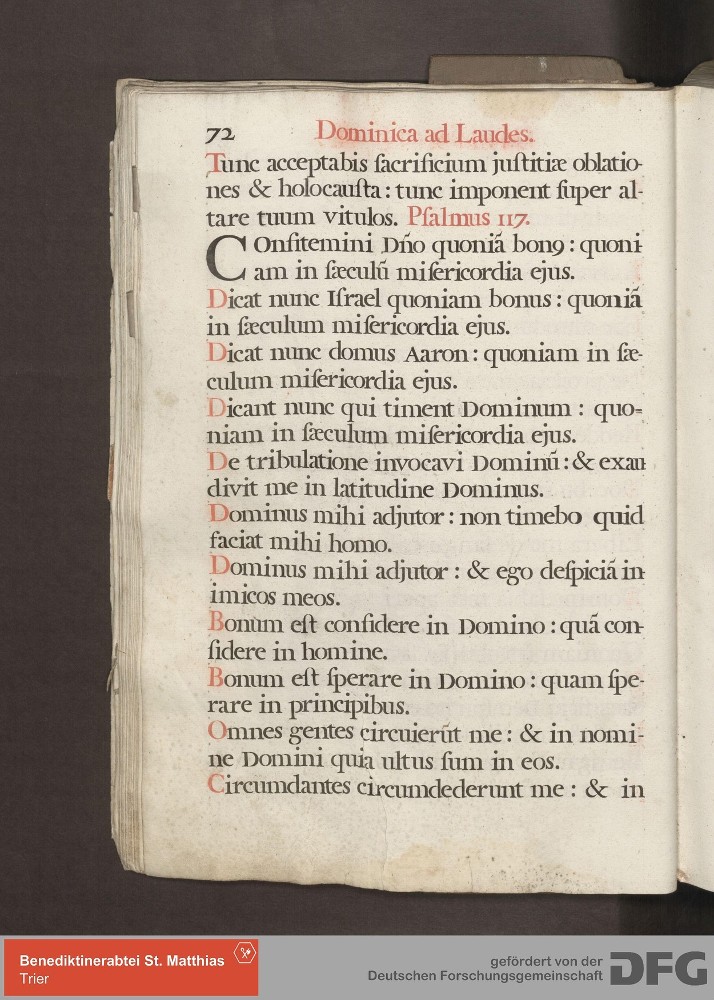 72 Dominica ad Laudes.
Tunc acceptabis ſacrificium juſtitiæ oblatio-
nes & holocauſta : tunc imponent ſuper al-
tare tuum vitulos. Pſalmus 117.
COnfitemini Dño quoniã bonꝰ : quoni-
am in ſæculũ miſericordia ejus.
Dicat nunc Iſrael quoniam bonus : quoniã
in ſæculum miſericordia ejus.
Dicat nunc domus Aaron : quoniam in ſæ-
culum miſericordia ejus.
Dicant nunc qui timent Dominum : quo-
niam in ſæculum miſericordia ejus.
De tribulatione invocavi Dominũ : & exau
divit me in latitudine Dominus.
Dominus mihi adjutor : non timebo quid
faciat mihi homo.
Dominus mihi adjutor : & ego deſpiciã in-
imicos meos.
Bonum eſt confidere in Domino : quã con-
fidere in homine.
Bonum eſt ſperare in Domino : quam ſpe-
rare in principibus.
Omnes gentes circuierũt me : & in nomi-
ne Domini quia ultus ſum in eos.
Circumdantes circumdederunt me : & in
Benediktinerabtei St. Matthias
Trier
gefördert von der
Deutschen Forschungsgemeinschaft DFG